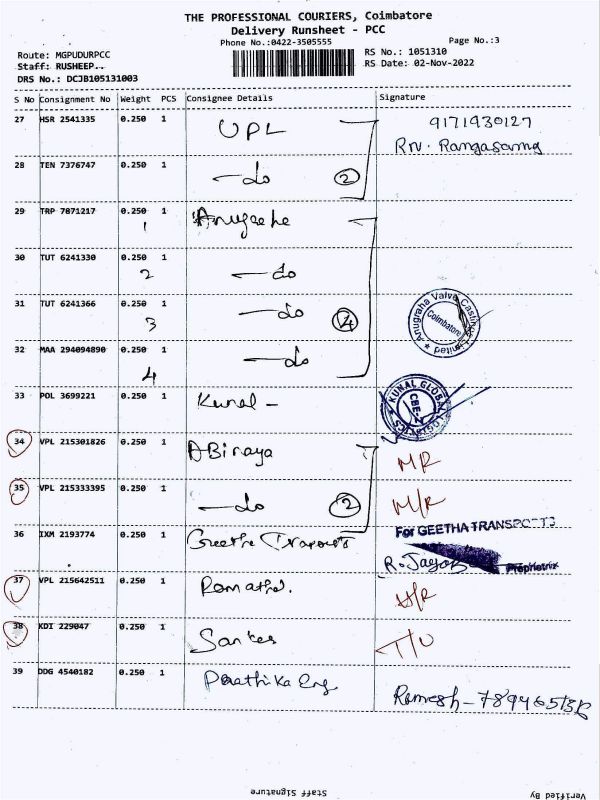 THE PROFESSIONAL COURIERS, Coimbatore
Delivery Runsheet - PCC
Phone No.:0422-3505555
Page No.:3
Route: MGPUDURPCC
Staff: RUSHEEP..
DRS No.: DCJB105131003
RS No.: 1051310
RS Date: 02-Nov-2022
S No Consignment No Weight PCS Consignee Details Signature
27 HSR 2541335 0.250 1 UPL 9171930127
Rangasamy
28 TEN 7376747 0.250 1 do 2
29 TRP 7871217 0.250 1
1
30 TUT 6241330 0.250 1 do
2
31 TUT 6241366 0.250 1 do 4
3
Anugraha Valve Castings Limited
Coimbatore
32 MAA 294094890 0.250 1 do
4
33 POL 3699221 0.250 1 Kunal -
KUNAL GLOBAL
34 VPL 215301826 0.250 1 ABiraya M/R
35 VPL 215333395 0.250 1 do 2 M/R
For GEETHA TRANSPORTS
36 IXM 2193774 0.250 1
Proprietrix
37 VPL 215642511 0.250 1
38 KDI 229047 0.250 1
39 DDG 4540182 0.250 1 Ramesh -
Staff Signature
Verified By